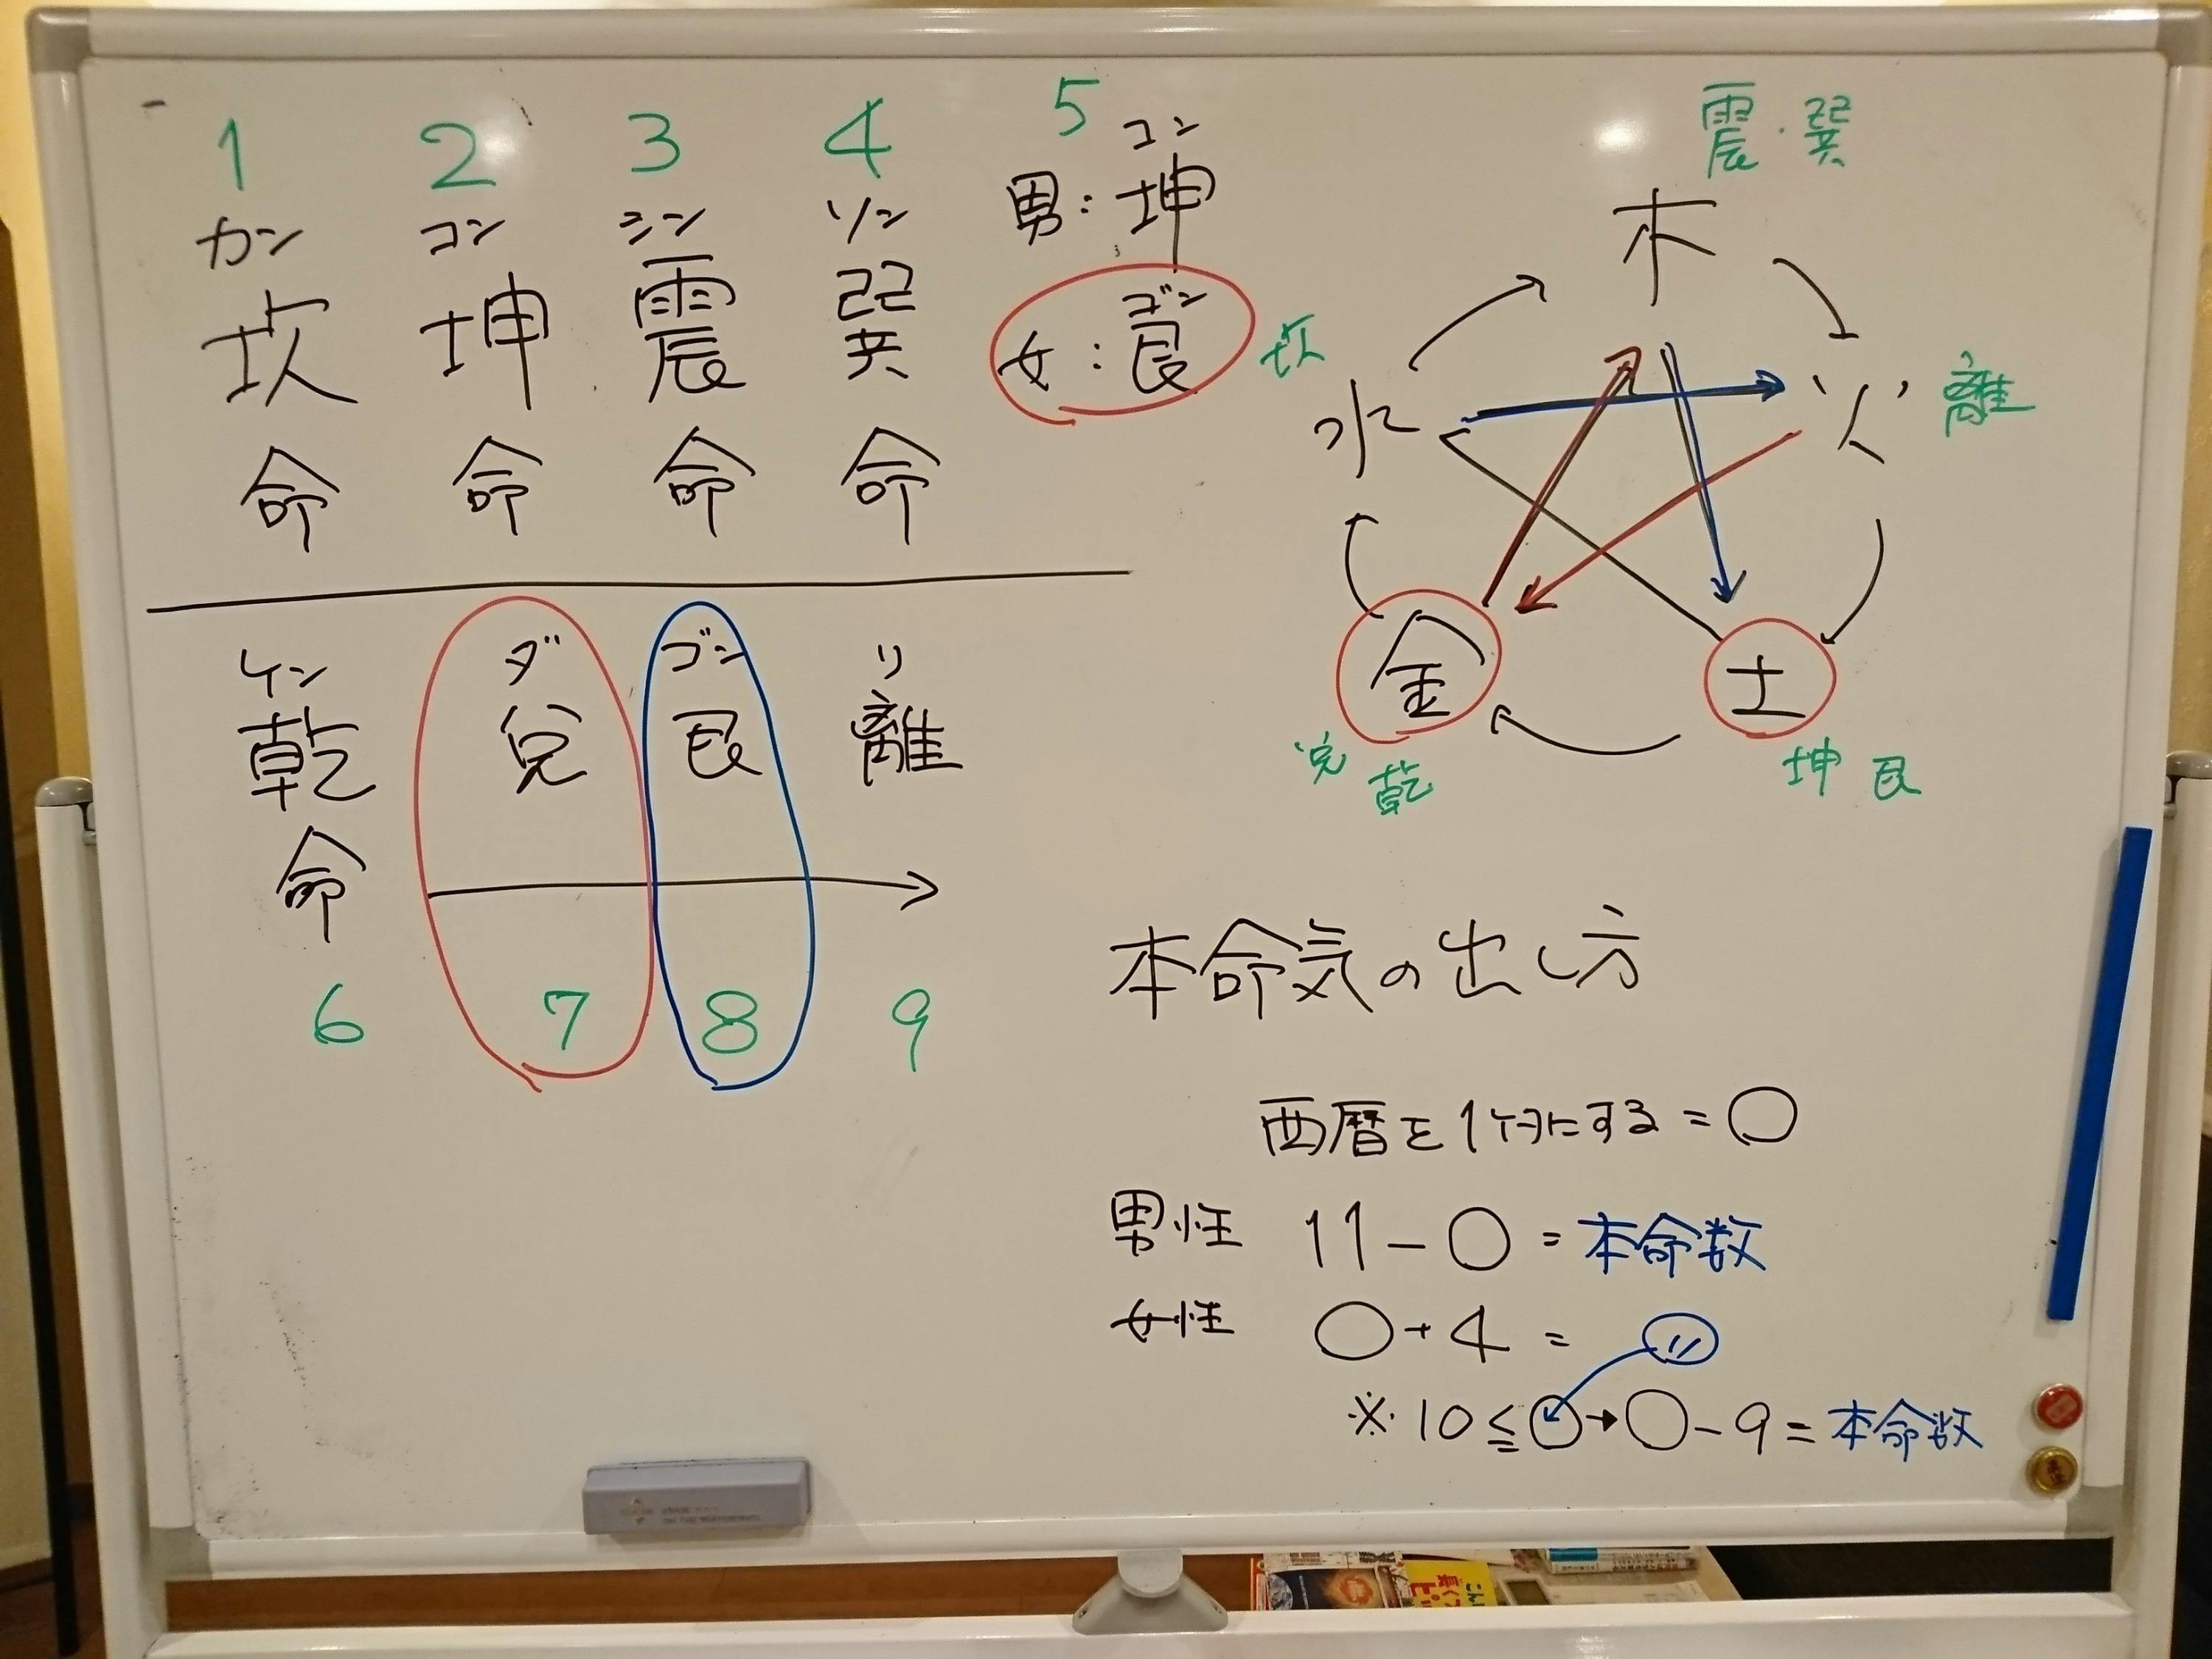 1 2 3 4 5
カン コン シン ソン
坎 坤 震 巽
命 命 命 命
コン
男:坤
ゴン
女:艮
ケン ダ ゴン リ
乾 兌 艮 離
命
6 7 8 9
震・巽
木
坎 水
火 離
金
兌 乾
土
坤 艮
本命気の出し方
西暦を1ケタにする=〇
男性 11-〇=本命数
女性 〇+4=〃
※10≦〇→〇-9=本命数